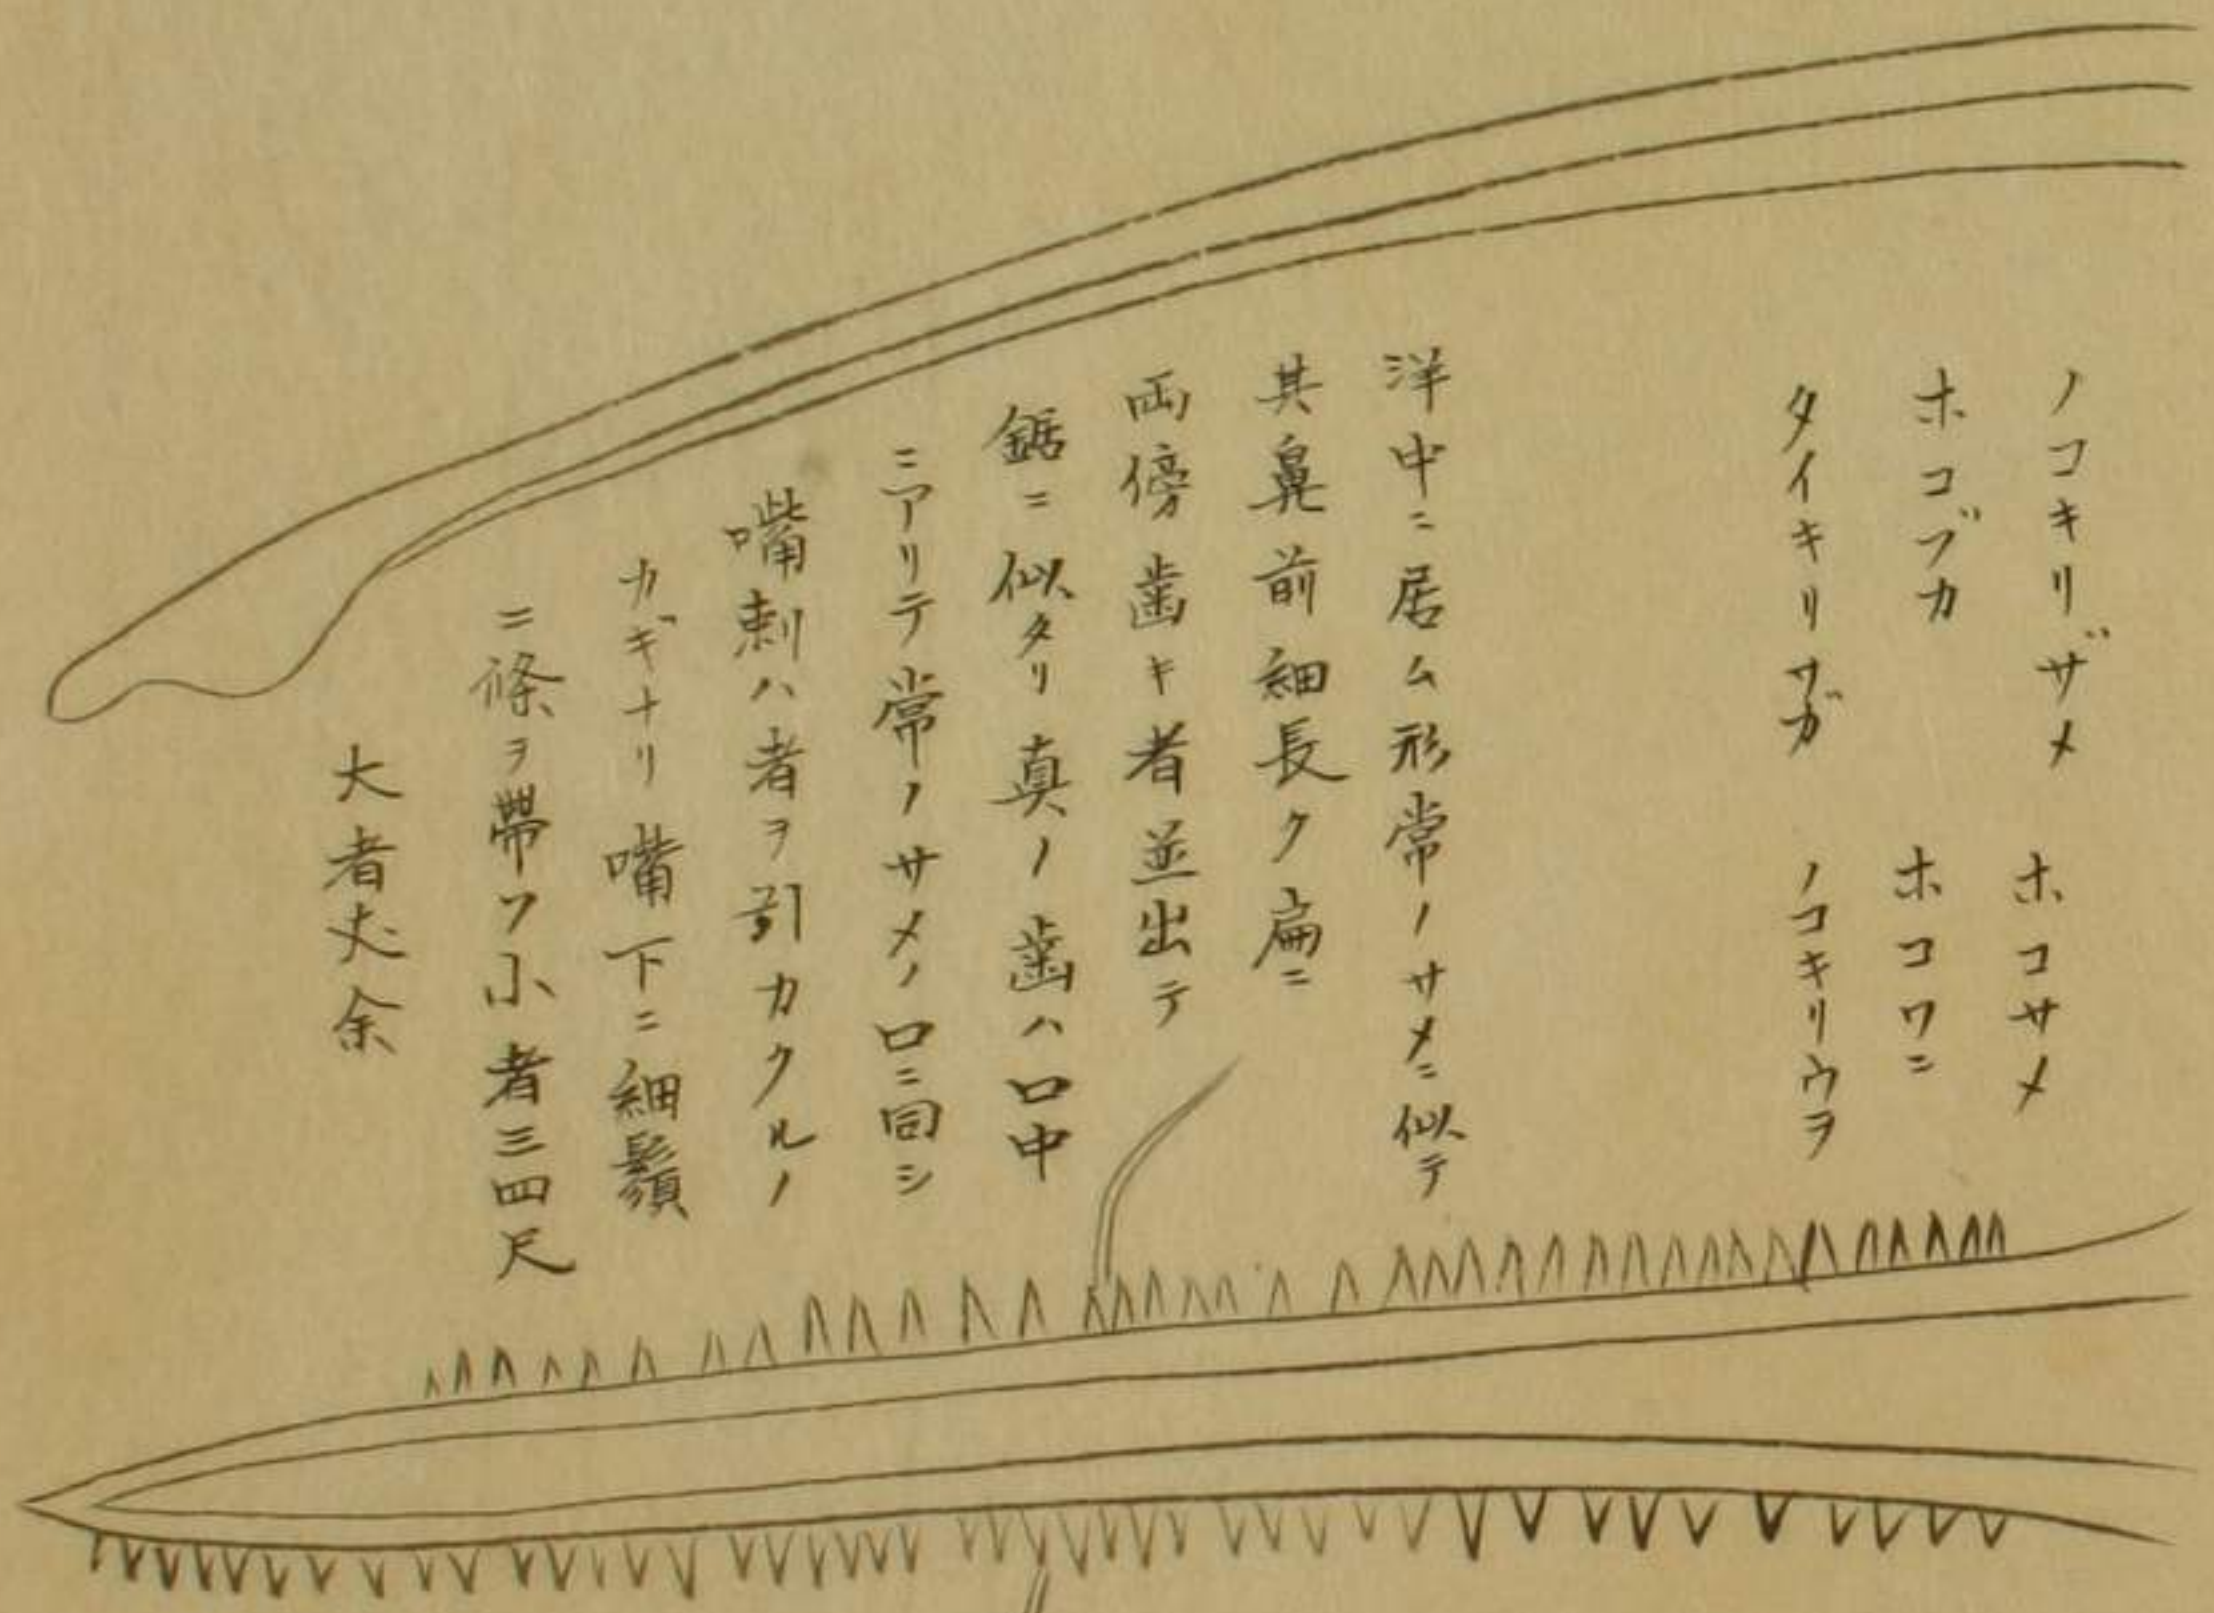 ノコキリザメ　ホコサメ
ホコブカ　ホコワニ
タイキリサガ　ノコキリウヲ
洋中ニ居ム形常ノサメニ似テ
其鼻前細長ク扁ニ
両傍歯キ者並出テ
鋸ニ似タリ真ノ歯ハ口中
ニアリテ常ノサメノ口ニ同シ
嘴刺ハ者ヲ引カクルノ
カギナリ嘴下ニ細鬚
二條ヲ帶フ小者三四尺
大者丈余